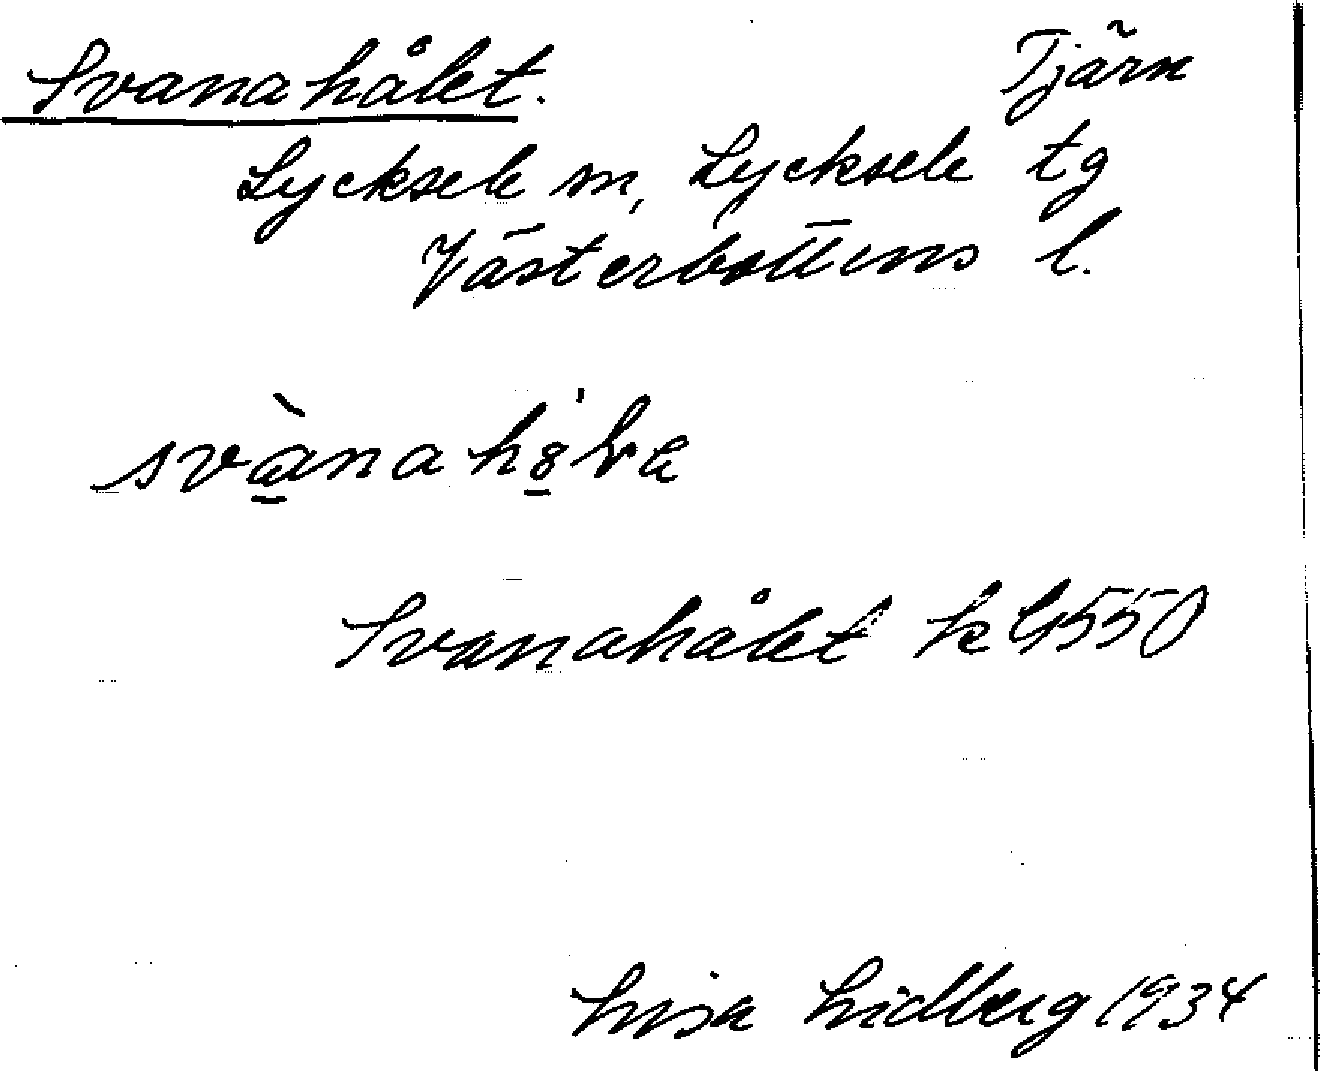 Svanahålet. Tjärn
Lycksele sn, Lycksele tg
Västerbottens l.
Svanahålet k 4550
Lisa Lidberg 1934